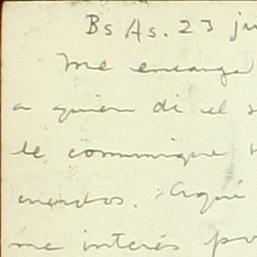 Bs As. 23 ju
Me encarga
a quien di el s
le comunique
Aquí
me interés po